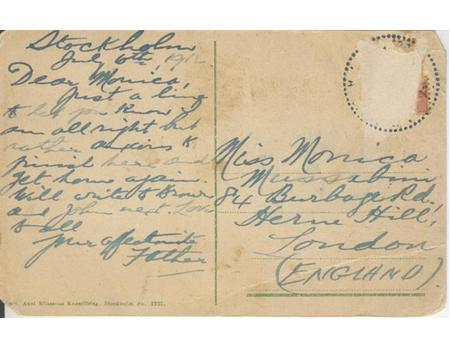 Stockholm
July 6th, 1912.
Dear Monica,
Just a line
to let you know I
am all right but
rather anxious to
finish here and
get home again.
Will write to
and John next. Love
to all
your affectionate
Father
Miss Monica
Mussabini
84 Burbage Rd,
Herne Hill,
London
(ENGLAND).
Axel Eliassons Konstförlag, Stockholm. No.